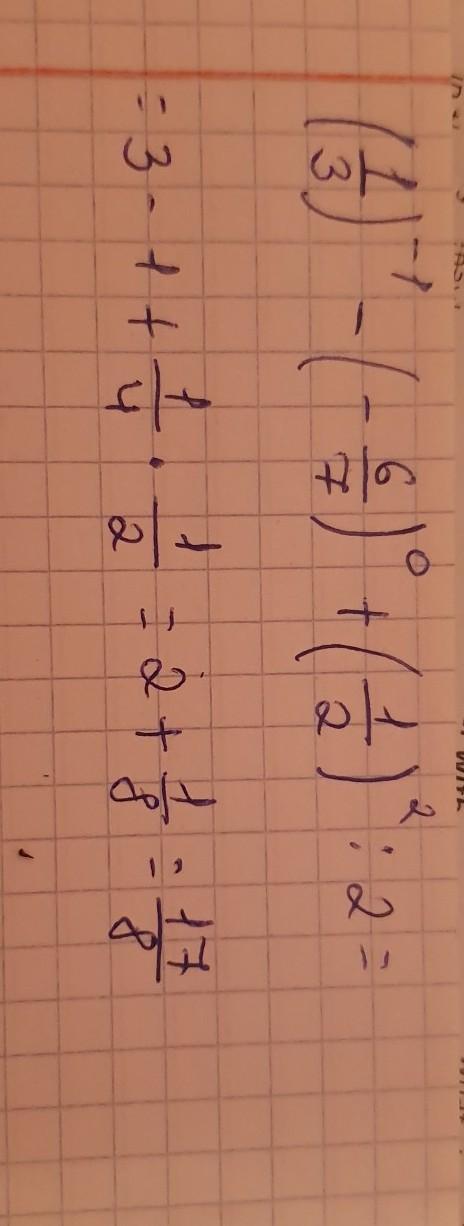 (1/3)⁻¹ - (- 6/7)⁰ + (1/2)² : 2 =
= 3 - 1 + 1/4 · 1/2 = 2 + 1/8 = 17/8